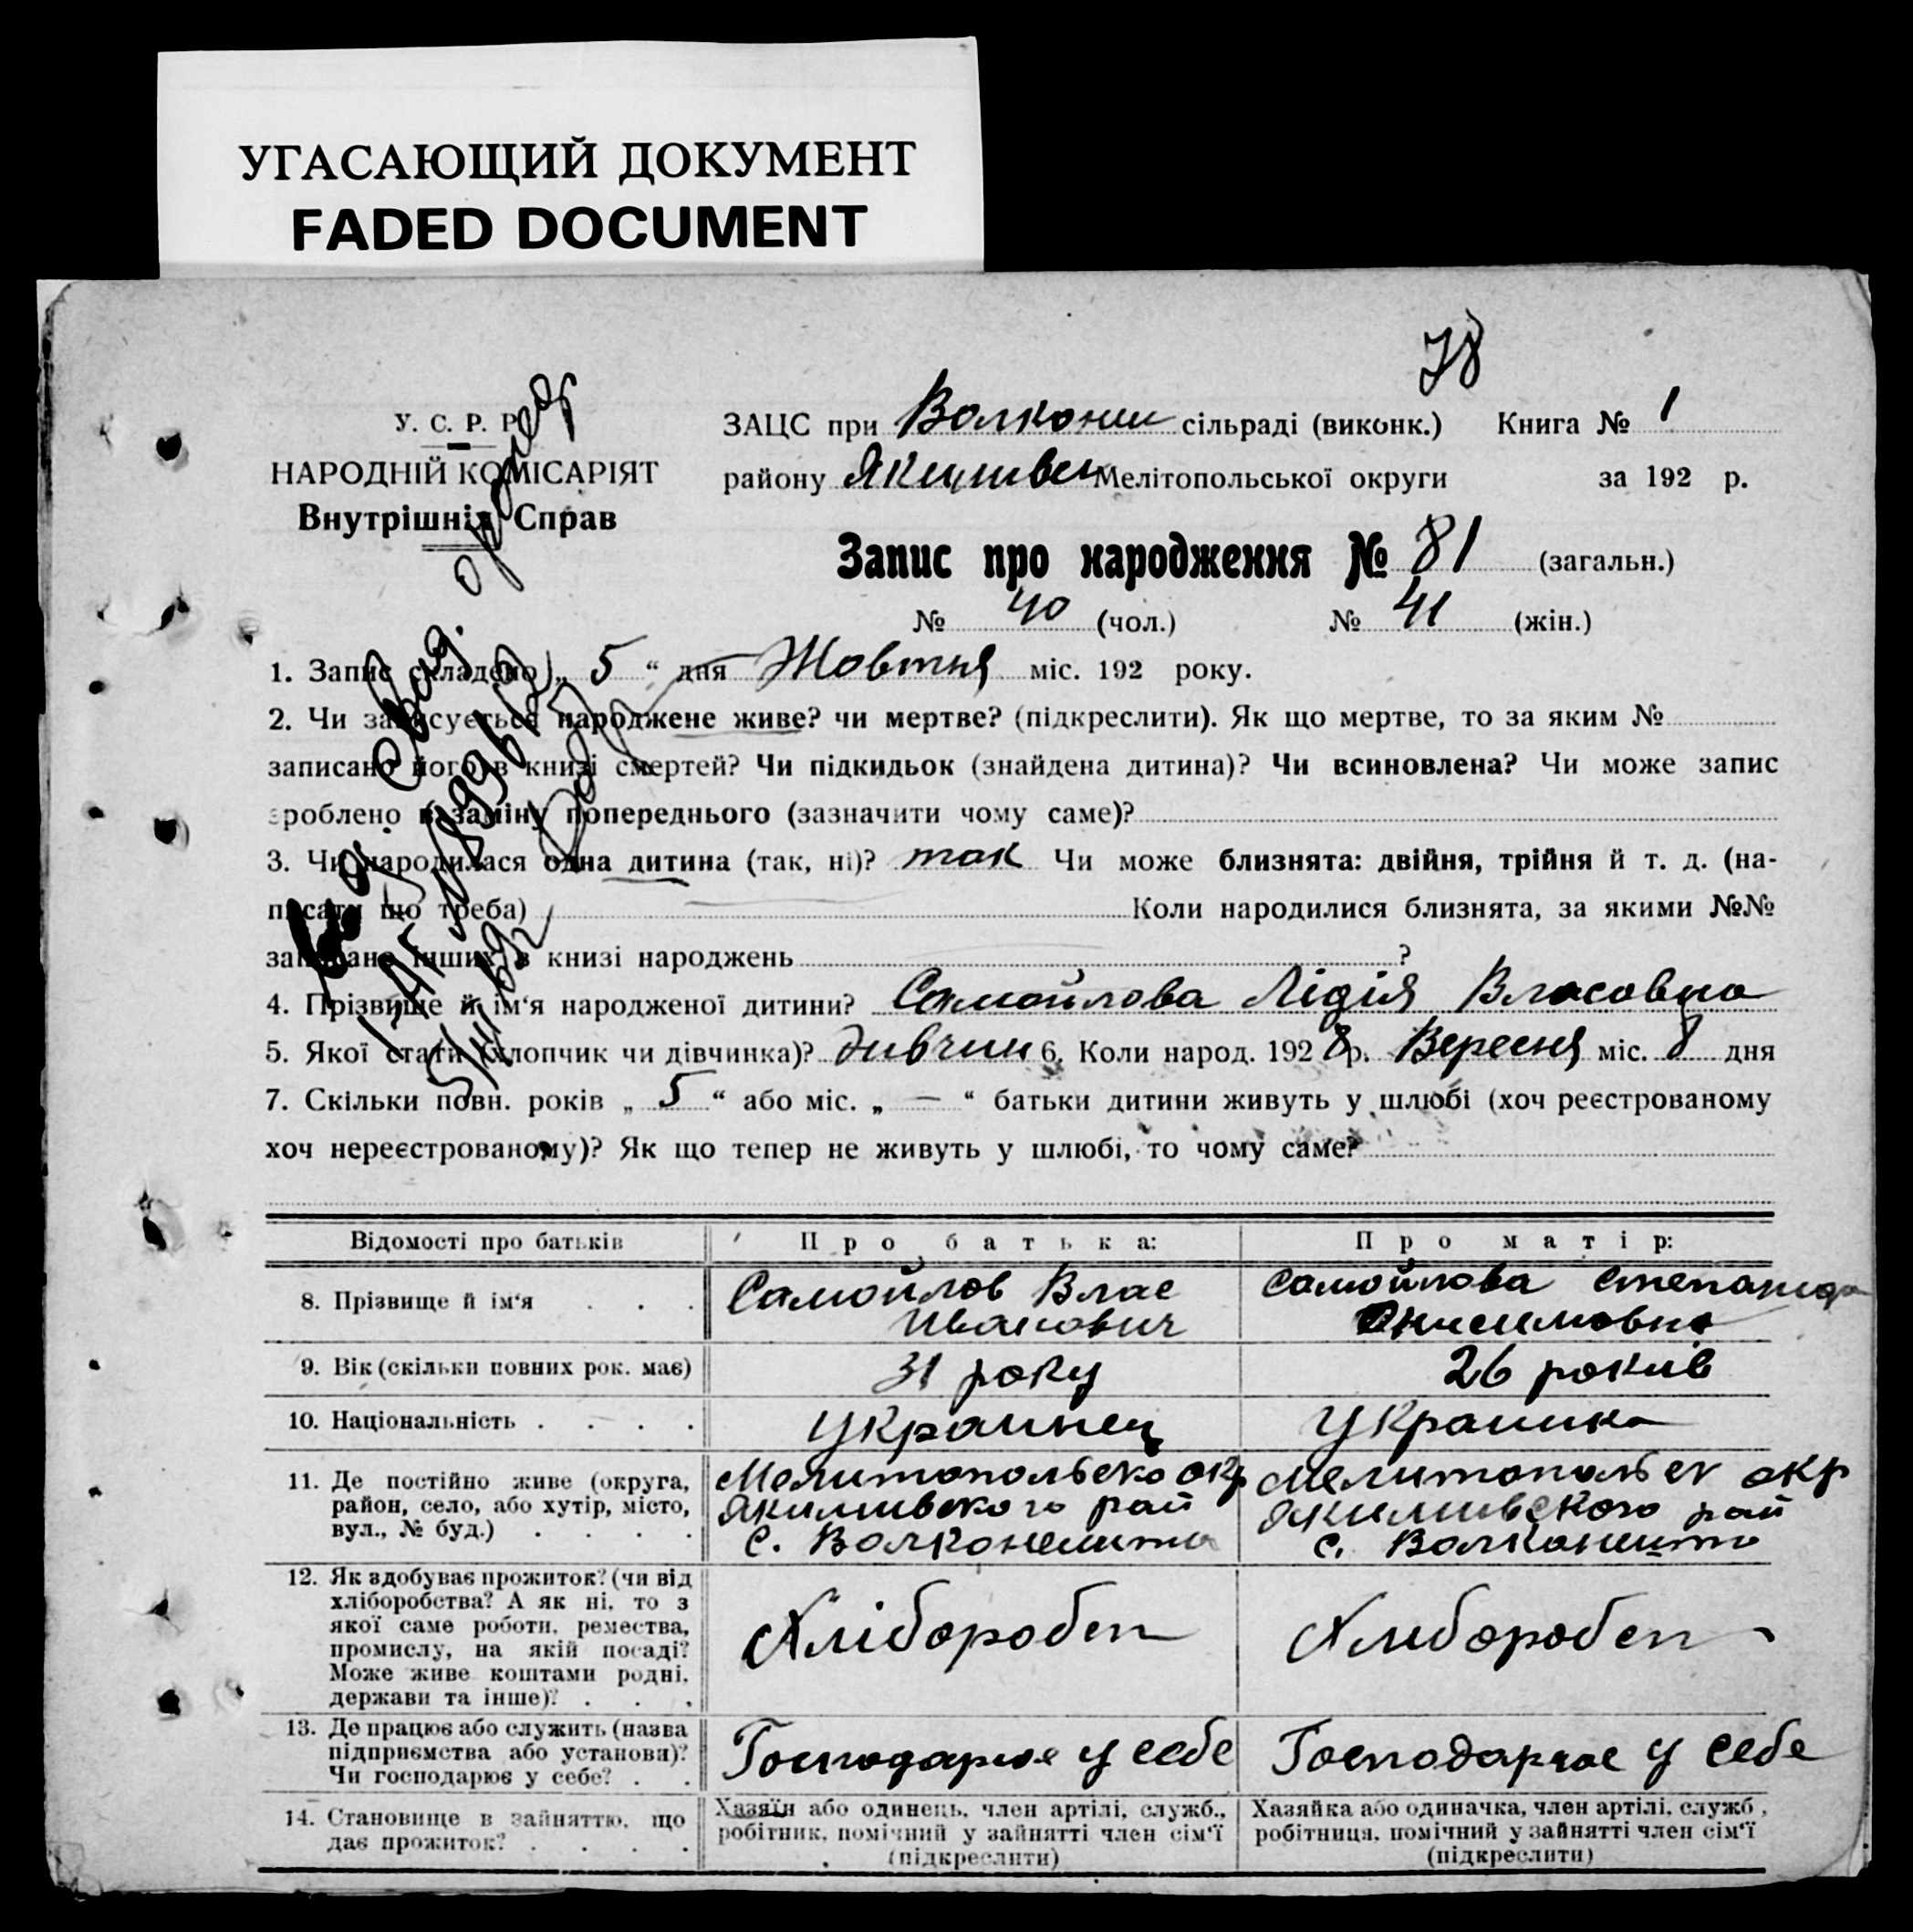 УГАСАЮЩИЙ ДОКУМЕНТ
FADED DOCUMENT
78
У. С. Р. Р.
НАРОДНІЙ КОМІСАРІЯТ
Внутрішніх Справ
ЗАЦС при Волкони сільраді (виконк.) Книга № 1
району Мелітопольської округи за 192 р.
Запис про народження № 81 (загальн.)
№ 40 (чол.) № 41 (жін.)
1. Запис складено „ 5 “ дня Жовтня міс. 192 року.
2. Чи записується народжене живе? чи мертве? (підкреслити). Як що мертве, то за яким №
записано його в книзі смертей? Чи підкидьок (знайдена дитина)? Чи всиновлена? Чи може запис
зроблено в заміну попереднього (зазначити чому саме)?
3. Чи народилася одна дитина (так, ні)? так Чи може близнята: двійня, трійня й т. д. (на-
писати що треба) Коли народилися близнята, за якими №№
записано інших в книзі народжень ?
4. Прізвище й ім‘я народженої дитини? Самойлова Лідія Власовна
5. Якої стати (хлопчик чи дівчинка)? дивчин 6. Коли народ. 1928 р. Вересня міс. 8 дня
7. Скільки повн. років „ 5 “ або міс. „ — “ батьки дитини живуть у шлюбі (хоч реєстрованому
хоч нереєстрованому)? Як що тепер не живуть у шлюбі, то чому саме?
Відомості про батьків Про батька: Про матір:
8. Прізвище й ім‘я . . . Самойлов Влас Самойлова Степанида
Иванович Онисимовна
9. Вік (скільки повних рок. має) 31 року 26 рокив
10. Національність . . . . Украинец Украинка
11. Де постійно живе (округа, Мелитопольско окр Мелитопольск окр
район, село, або хутір, місто, Якимивского рай Якимивского рай
вул., № буд.) . . . . с. с.
12. Як здобуває прожиток? (чи від
хліборобства? А як ні, то з
якої саме роботи, ремества, Хлібороbeп Хлибороbeп
промислу, на якій посаді?
Може живе коштами родні,
держави та інше)? . . .
13. Де працює або служить (назва
підприємства або установи)? Господарює у себе Господарює у себе
Чи господарює у себе? . .
14. Становище в зайняттю, що Хазяїн або одинець, член артілі, служб., Хазяйка або одиначка, член артілі, служб.,
дає прожиток? . . . . робітник, помічний у зайнятті член сім‘ї робітниця, помічний у зайнятті член сім‘ї
(підкреслити) (підкреслити)